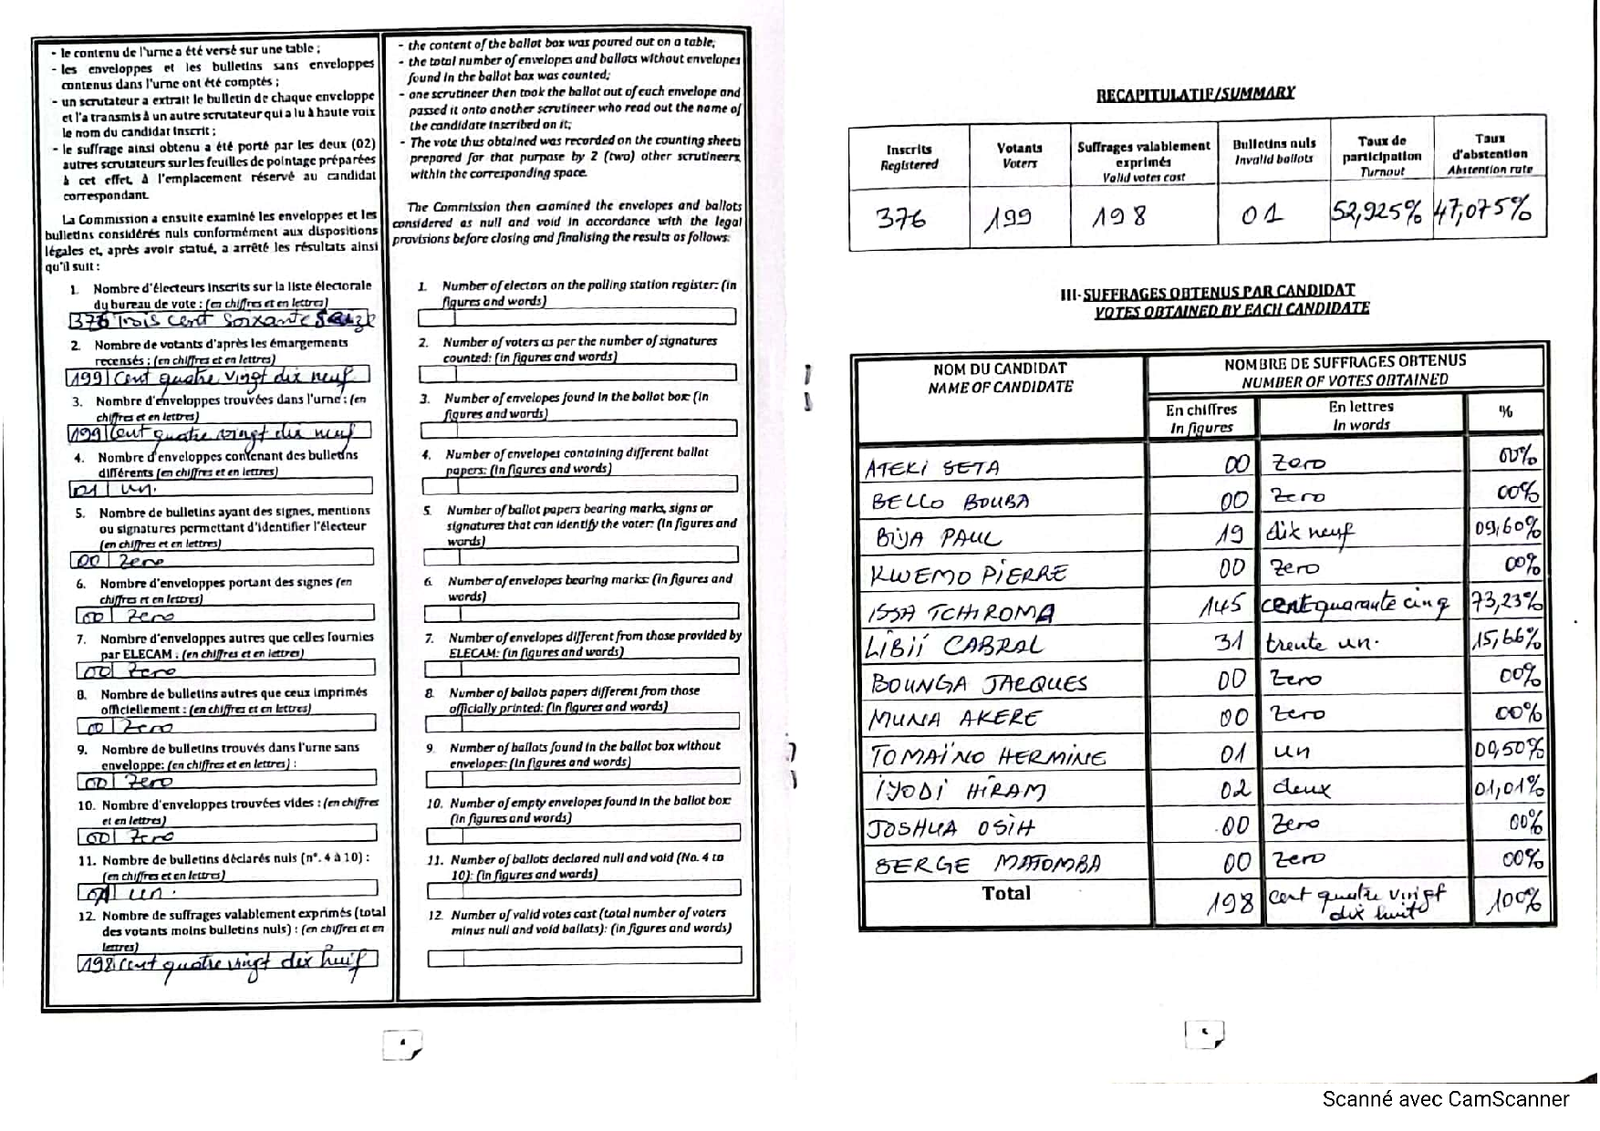 - le contenu de l'urne a été versé sur une table ;
- les enveloppes et les bulletins sans enveloppes
contenus dans l'urne ont été comptés ;
- un scrutateur a extrait le bulletin de chaque enveloppe
et l'a transmis à un autre scrutateur qui a lu à haute voix
le nom du candidat inscrit ;
- le suffrage ainsi obtenu a été porté par les deux (02)
autres scrutateurs sur les feuilles de pointage préparées
à cet effet, à l'emplacement réservé au candidat
correspondant.
La Commission a ensuite examiné les enveloppes et les
bulletins considérés nuls conformément aux dispositions
légales et, après avoir statué, a arrêté les résultats ainsi
qu'il suit :
1. Nombre d'électeurs inscrits sur la liste électorale
du bureau de vote : (en chiffres et en lettres)
376 Trois cent soixante seize
2. Nombre de votants d'après les émargements
recensés : (en chiffres et en lettres)
199 Cent quatre vingt dix neuf
3. Nombre d'enveloppes trouvées dans l'urne : (en
chiffres et en lettres)
199 Cent quatre vingt dix neuf
4. Nombre d'enveloppes contenant des bulletins
différents (en chiffres et en lettres)
01 un.
5. Nombre de bulletins ayant des signes, mentions
ou signatures permettant d'identifier l'électeur
(en chiffres et en lettres)
00 Zero
6. Nombre d'enveloppes portant des signes (en
chiffres et en lettres)
00 Zero
7. Nombre d'enveloppes autres que celles fournies
par ELECAM : (en chiffres et en lettres)
00 Zero
8. Nombre de bulletins autres que ceux imprimés
officiellement : (en chiffres et en lettres)
00 Zero
9. Nombre de bulletins trouvés dans l'urne sans
enveloppe: (en chiffres et en lettres) :
00 Zero
10. Nombre d'enveloppes trouvées vides : (en chiffres
et en lettres)
00 Zero
11. Nombre de bulletins déclarés nuls (n°. 4 à 10) :
(en chiffres et en lettres)
01 un.
12. Nombre de suffrages valablement exprimés (total
des votants moins bulletins nuls) : (en chiffres et en
lettres)
198 Cent quatre vingt dix huit
- the content of the ballot box was poured out on a table;
- the total number of envelopes and ballots without envelopes
found in the ballot box was counted;
- one scrutineer then took the ballot out of each envelope and
passed it onto another scrutineer who read out the name of
the candidate inscribed on it;
- The vote thus obtained was recorded on the counting sheets
prepared for that purpose by 2 (two) other scrutineers,
within the corresponding space.
The Commission then examined the envelopes and ballots
considered as null and void in accordance with the legal
provisions before closing and finalising the results as follows:
1. Number of electors on the polling station register: (in
figures and words)
2. Number of voters as per the number of signatures
counted: (in figures and words)
3. Number of envelopes found in the ballot box: (in
figures and words)
4. Number of envelopes containing different ballot
papers: (in figures and words)
5. Number of ballot papers bearing marks, signs or
signatures that can identify the voter: (in figures and
words)
6. Number of envelopes bearing marks: (in figures and
words)
7. Number of envelopes different from those provided by
ELECAM: (in figures and words)
8. Number of ballots papers different from those
officially printed: (in figures and words)
9. Number of ballots found in the ballot box without
envelopes: (in figures and words)
10. Number of empty envelopes found in the ballot box:
(in figures and words)
11. Number of ballots declared null and void (No. 4 to
10): (in figures and words)
12. Number of valid votes cast (total number of voters
minus null and void ballots): (in figures and words)
4
RECAPITULATIF/SUMMARY
Inscrits Registered | Votants Voters | Suffrages valablement exprimés Valid votes cast | Bulletins nuls Invalid ballots | Taux de participation Turnout | Taux d'abstention Abstention rate
376 199 198 01 52,925% 47,075%
III- SUFFRAGES OBTENUS PAR CANDIDAT
VOTES OBTAINED BY EACH CANDIDATE
NOM DU CANDIDAT
NAME OF CANDIDATE
NOMBRE DE SUFFRAGES OBTENUS
NUMBER OF VOTES OBTAINED
En chiffres En lettres %
In figures In words
ATEKI SETA 00 Zero 00%
BELLO BOUBA 00 Zero 00%
BIYA PAUL 19 dix neuf 09,60%
KWEMO PIERRE 00 Zero 00%
ISSA TCHIROMA 145 cent quarante cinq 73,23%
LIBII CABRAL 31 trente un. 15,66%
BOUNGA JACQUES 00 Zero 00%
MUNA AKERE 00 Zero 00%
TOMAÏNO HERMINE 01 un 00,50%
IYODI HIRAM 02 deux 01,01%
JOSHUA OSIH 00 Zero 00%
SERGE MATOMBA 00 Zero 00%
Total 198 cent quatre vingt dix huit 100%
5
Scanné avec CamScanner